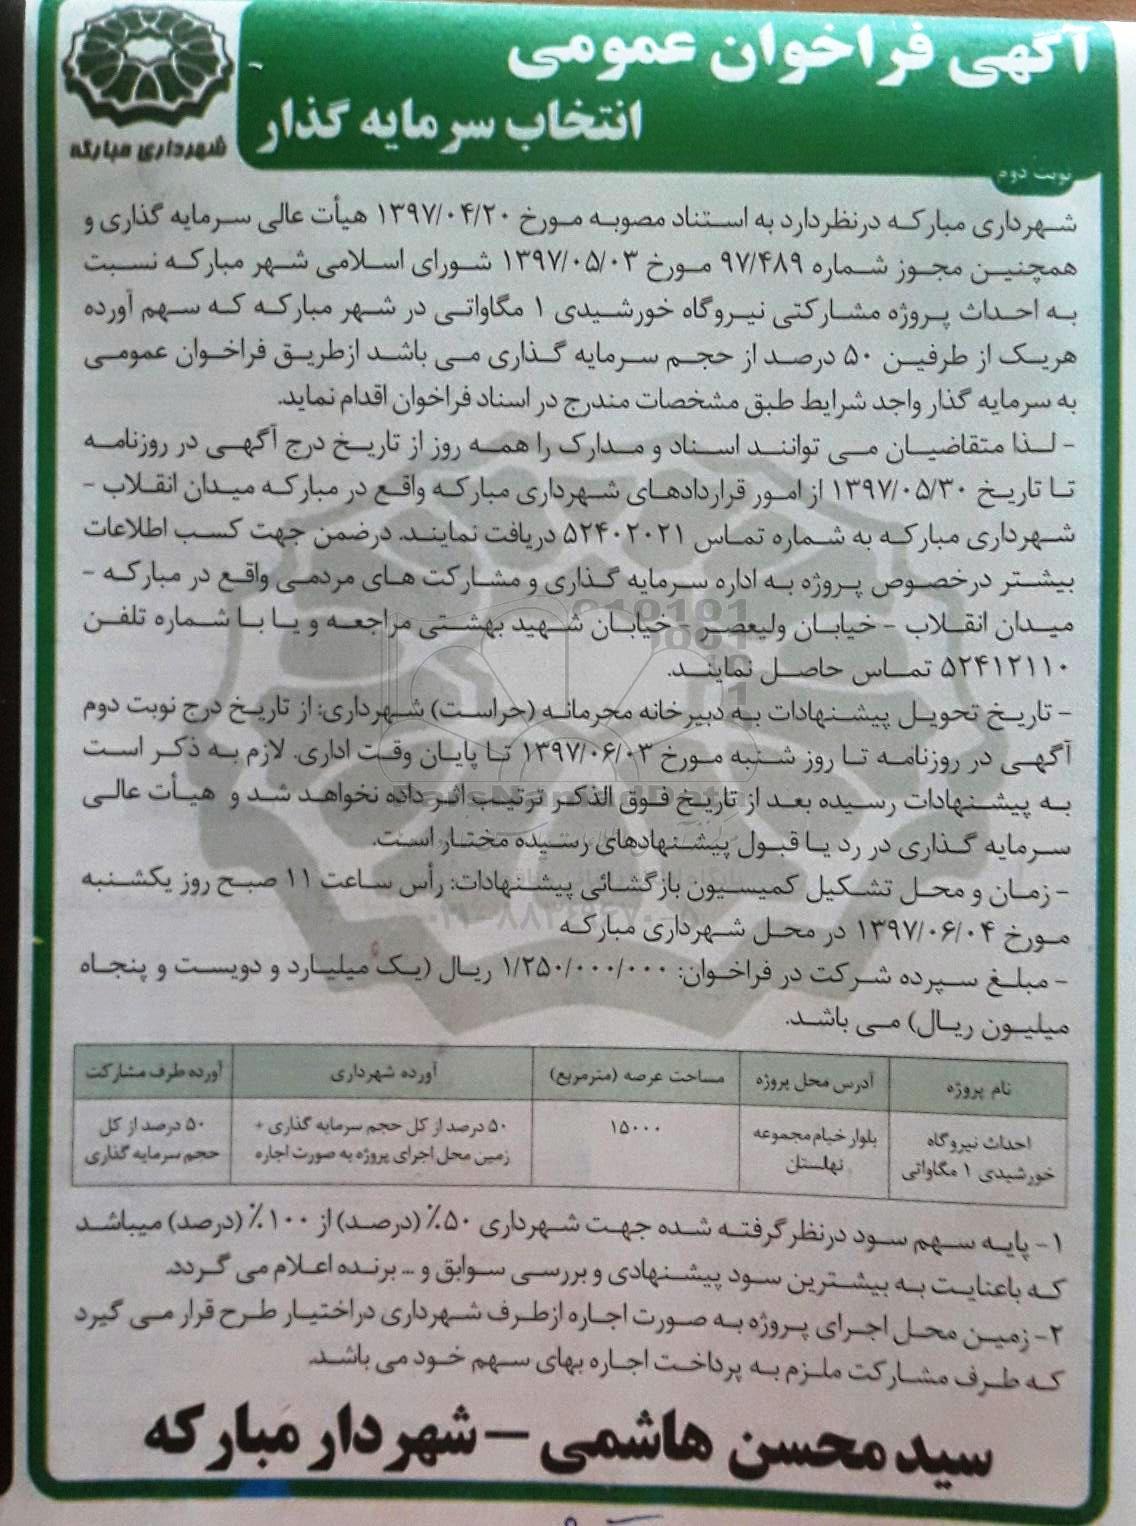 آگهی فراخوان عمومی
انتخاب سرمایه گذار
شهرداری مبارکه
نوبت دوم
شهرداری مبارکه درنظردارد به استناد مصوبه مورخ ۱۳۹۷/۰۴/۲۰ هیأت عالی سرمایه گذاری و
همچنین مجوز شماره ۹۷/۴۸۹ مورخ ۱۳۹۷/۰۵/۰۳ شورای اسلامی شهر مبارکه نسبت
به احداث پروژه مشارکتی نیروگاه خورشیدی ۱ مگاواتی در شهر مبارکه که سهم آورده
هریک از طرفین ۵۰ درصد از حجم سرمایه گذاری می باشد ازطریق فراخوان عمومی
به سرمایه گذار واجد شرایط طبق مشخصات مندرج در اسناد فراخوان اقدام نماید.
- لذا متقاضیان می توانند اسناد و مدارک را همه روز از تاریخ درج آگهی در روزنامه
تا تاریخ ۱۳۹۷/۰۵/۳۰ از امور قراردادهای شهرداری مبارکه واقع در مبارکه میدان انقلاب -
شهرداری مبارکه به شماره تماس ۵۲۴۰۲۰۲۱ دریافت نمایند. درضمن جهت کسب اطلاعات
بیشتر درخصوص پروژه به اداره سرمایه گذاری و مشارکت های مردمی واقع در مبارکه -
میدان انقلاب - خیابان ولیعصر - خیابان شهید بهشتی مراجعه و یا با شماره تلفن
۵۲۴۱۲۱۱۰ تماس حاصل نمایند.
- تاریخ تحویل پیشنهادات به دبیرخانه محرمانه (حراست) شهرداری: از تاریخ درج نوبت دوم
آگهی در روزنامه تا روز شنبه مورخ ۱۳۹۷/۰۶/۰۳ تا پایان وقت اداری. لازم به ذکر است
به پیشنهادات رسیده بعد از تاریخ فوق الذکر ترتیب اثر داده نخواهد شد و هیأت عالی
سرمایه گذاری در رد یا قبول پیشنهادهای رسیده مختار است.
- زمان و محل تشکیل کمیسیون بازگشائی پیشنهادات: رأس ساعت ۱۱ صبح روز یکشنبه
مورخ ۱۳۹۷/۰۶/۰۴ در محل شهرداری مبارکه
- مبلغ سپرده شرکت در فراخوان: ۱/۲۵۰/۰۰۰/۰۰۰ ریال (یک میلیارد و دویست و پنجاه
میلیون ریال) می باشد.
نام پروژه آدرس محل پروژه مساحت عرصه (مترمربع) آورده شهرداری آورده طرف مشارکت
احداث نیروگاه بلوار خیام مجموعه ۱۵۰۰۰ ۵۰ درصد از کل حجم سرمایه گذاری + ۵۰ درصد از کل
خورشیدی ۱ مگاواتی نهلستان زمین محل اجرای پروژه به صورت اجاره حجم سرمایه گذاری
۱- پایه سهم سود درنظر گرفته شده جهت شهرداری ۵۰٪ (درصد) از ۱۰۰٪ (درصد) میباشد
که باعنایت به بیشترین سود پیشنهادی و بررسی سوابق و ... برنده اعلام می گردد.
۲- زمین محل اجرای پروژه به صورت اجاره ازطرف شهرداری دراختیار طرح قرار می گیرد
که طرف مشارکت ملزم به پرداخت اجاره بهای سهم خود می باشد.
سید محسن هاشمی - شهردار مبارکه